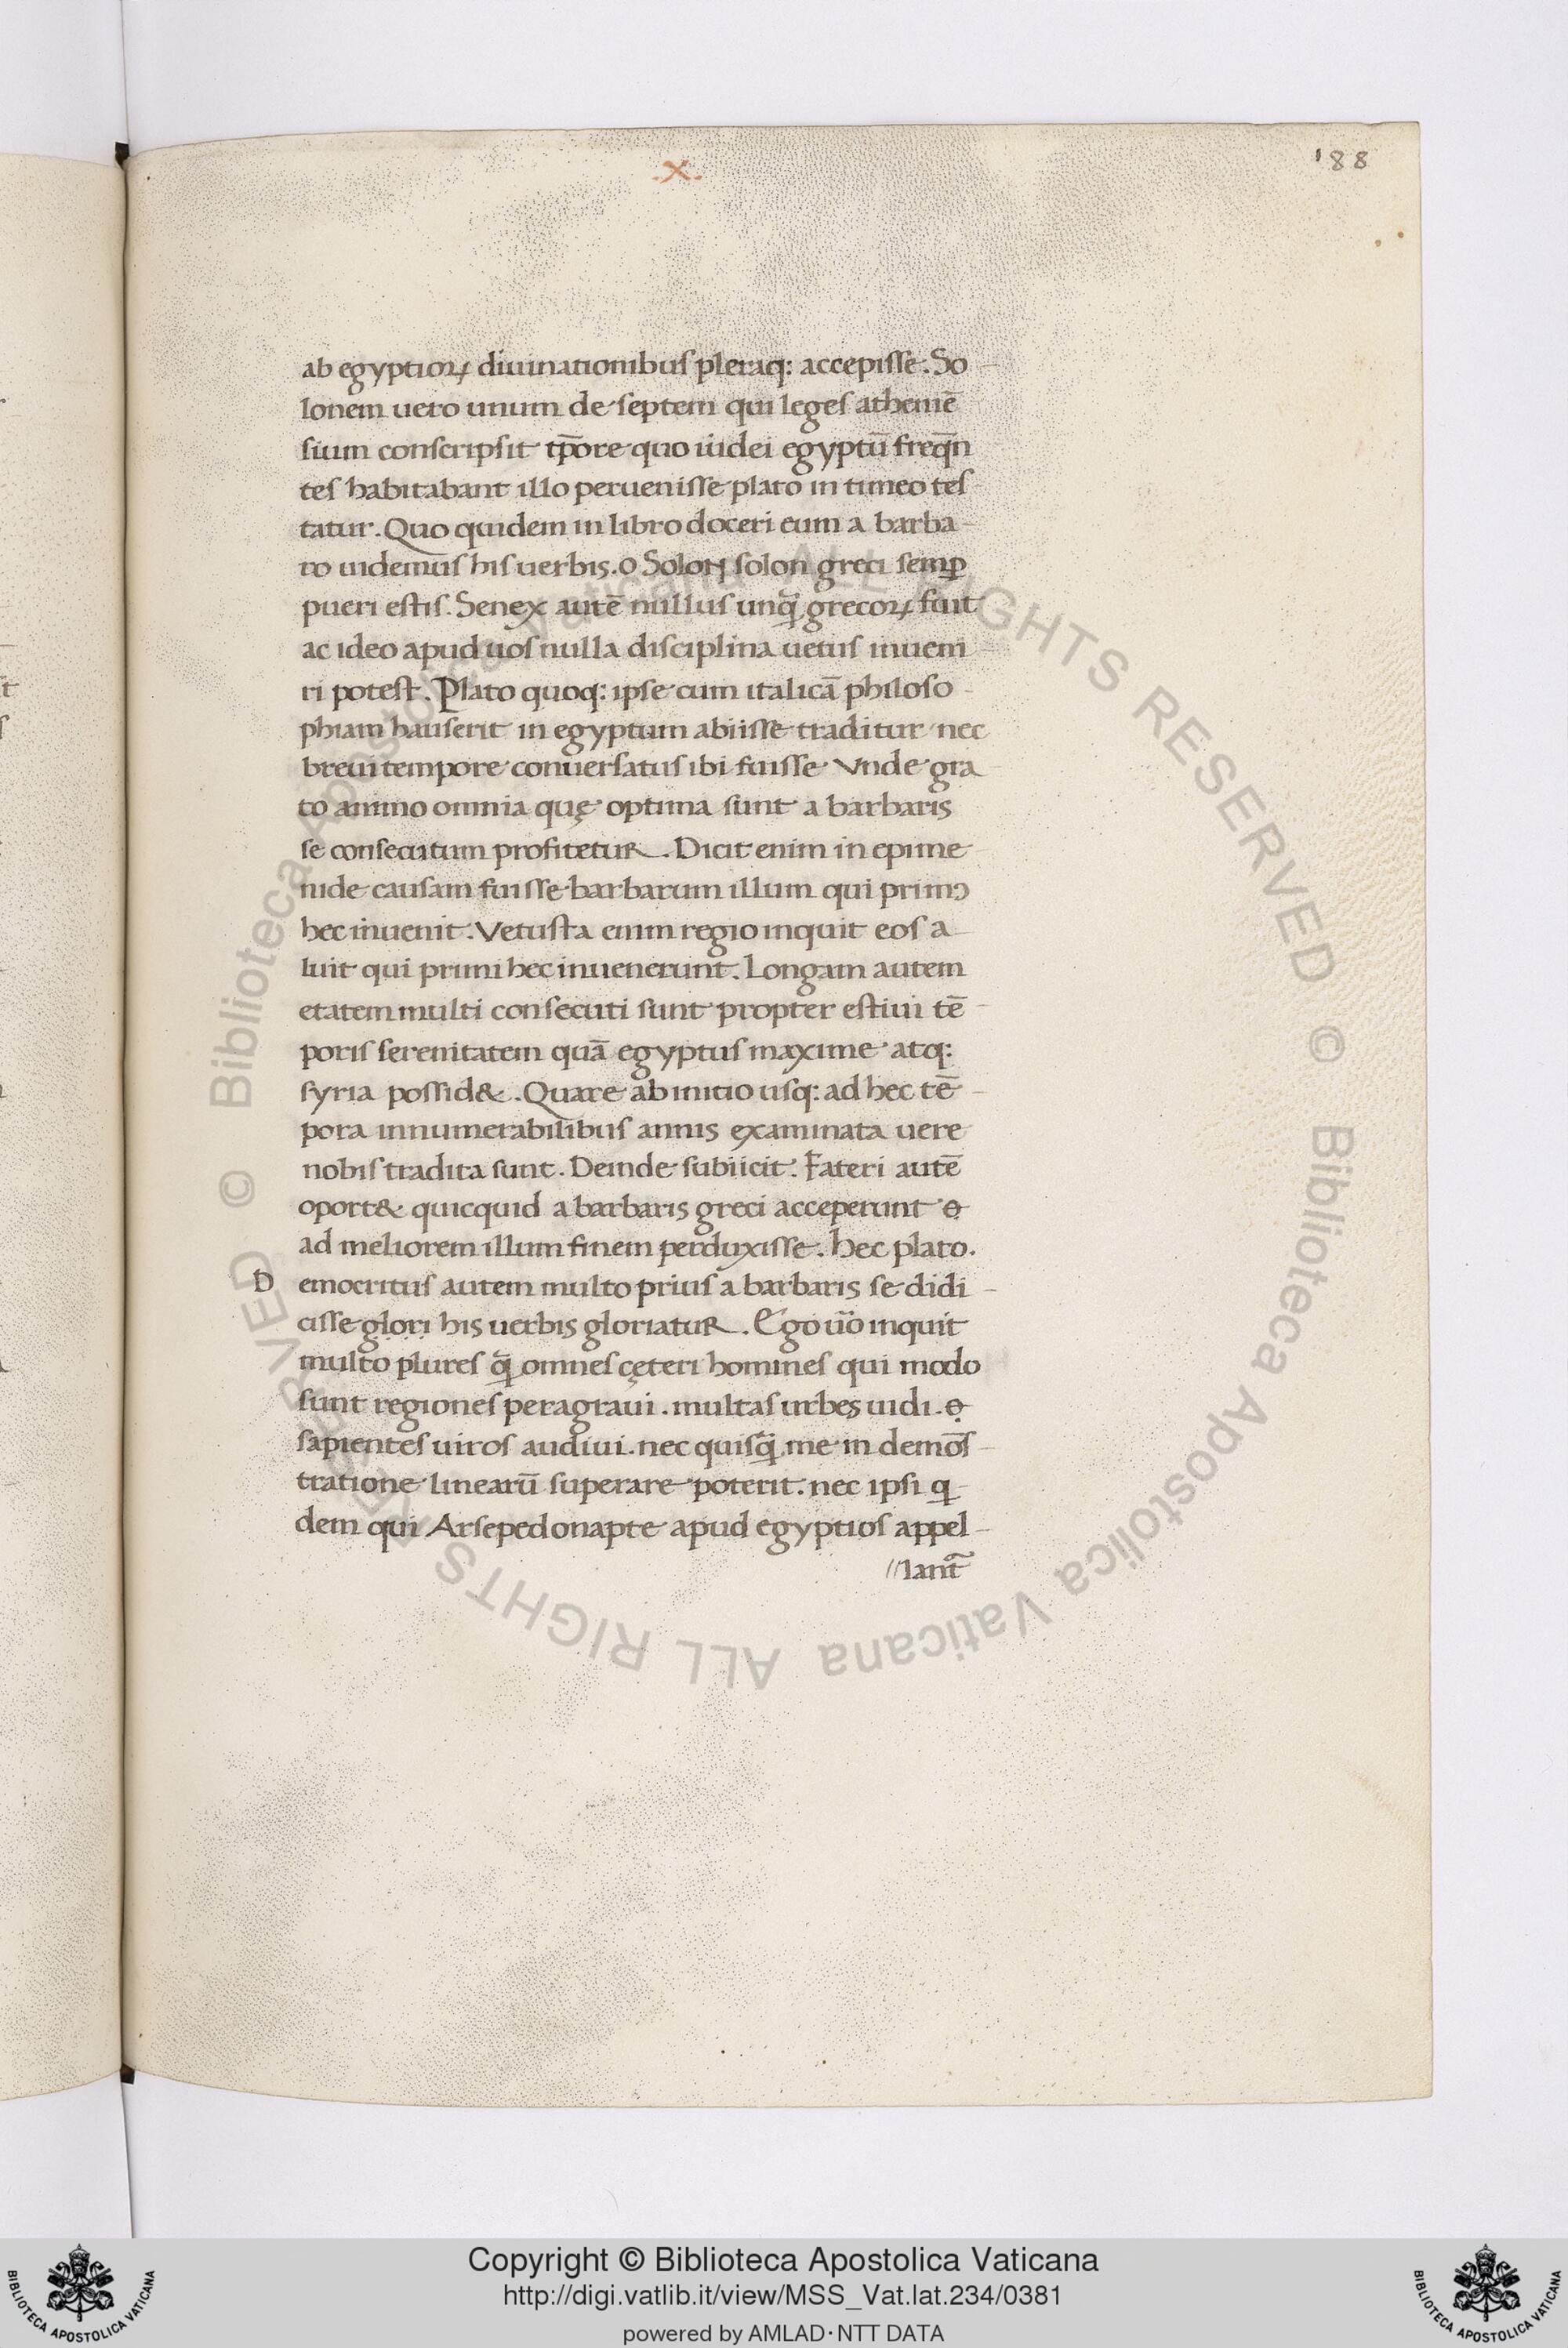 .X.
188
ab egyptioꝝ diuinationibus pleraq: accepisse. So
lonem uero unum de septem qui leges atheniē
sium conscripsit tp̄ore quo iudei egyptū freq̄n
tes habitabant illo peruenisse plato in timeo tes
tatur. Quo quidem in libro doceri eum a barba
ro uidemus his uerbis. O Solon solon greci semꝑ
pueri estis. Senex autē nullus unq̄ grecoꝝ fuit
ac ideo apud uos nulla disciplina uetus inueni
ri potest. Plato quoq: ipse cum italicā philoso
phiam hauserit in egyptum abiisse traditur nec
breui tempore conuersatus ibi fuisse Vnde gra
to animo omnia quę optima sunt a barbaris
se consecutum profitetur. Dicit enim in epime
nide causam fuisse barbarum illum qui primo
hec inuenit. Vetusta enim regio inquit eos a
luit qui primi hec inuenerunt. Longam autem
etatem multi consecuti sunt propter estiui tē
poris serenitatem quā egyptus maxime atq:
syria possid&. Quare ab initio usq: ad hec tē
pora innumerabilibus annis examinata uere
nobis tradita sunt. Deinde subiicit. Fateri autē
oport& quicquid a barbaris greci acceperunt &
ad meliorem illum finem perduxisse. hec plato.
D emocritus autem multo prius a barbaris se didi
cisse glori his uerbis gloriatur. Ego uo inquit
multo plures q̄ omnes cęteri homines qui modo
sunt regiones peragraui. multas urbes uidi. &
sapientes uiros audiui. nec quisq̄ me in demōs
tratione linearū superare poterit. nec ipsi q
dem qui Arsepedonapte apud egyptios appel
//lant̄
© Biblioteca Apostolica Vaticana ALL RIGHTS RESERVED © Biblioteca Apostolica Vaticana ALL RIGHTS RESERVED
Copyright © Biblioteca Apostolica Vaticana
http://digi.vatlib.it/view/MSS_Vat.lat.234/0381
powered by AMLAD·NTT DATA
BIBLIOTECA APOSTOLICA VATICANA
BIBLIOTECA APOSTOLICA VATICANA